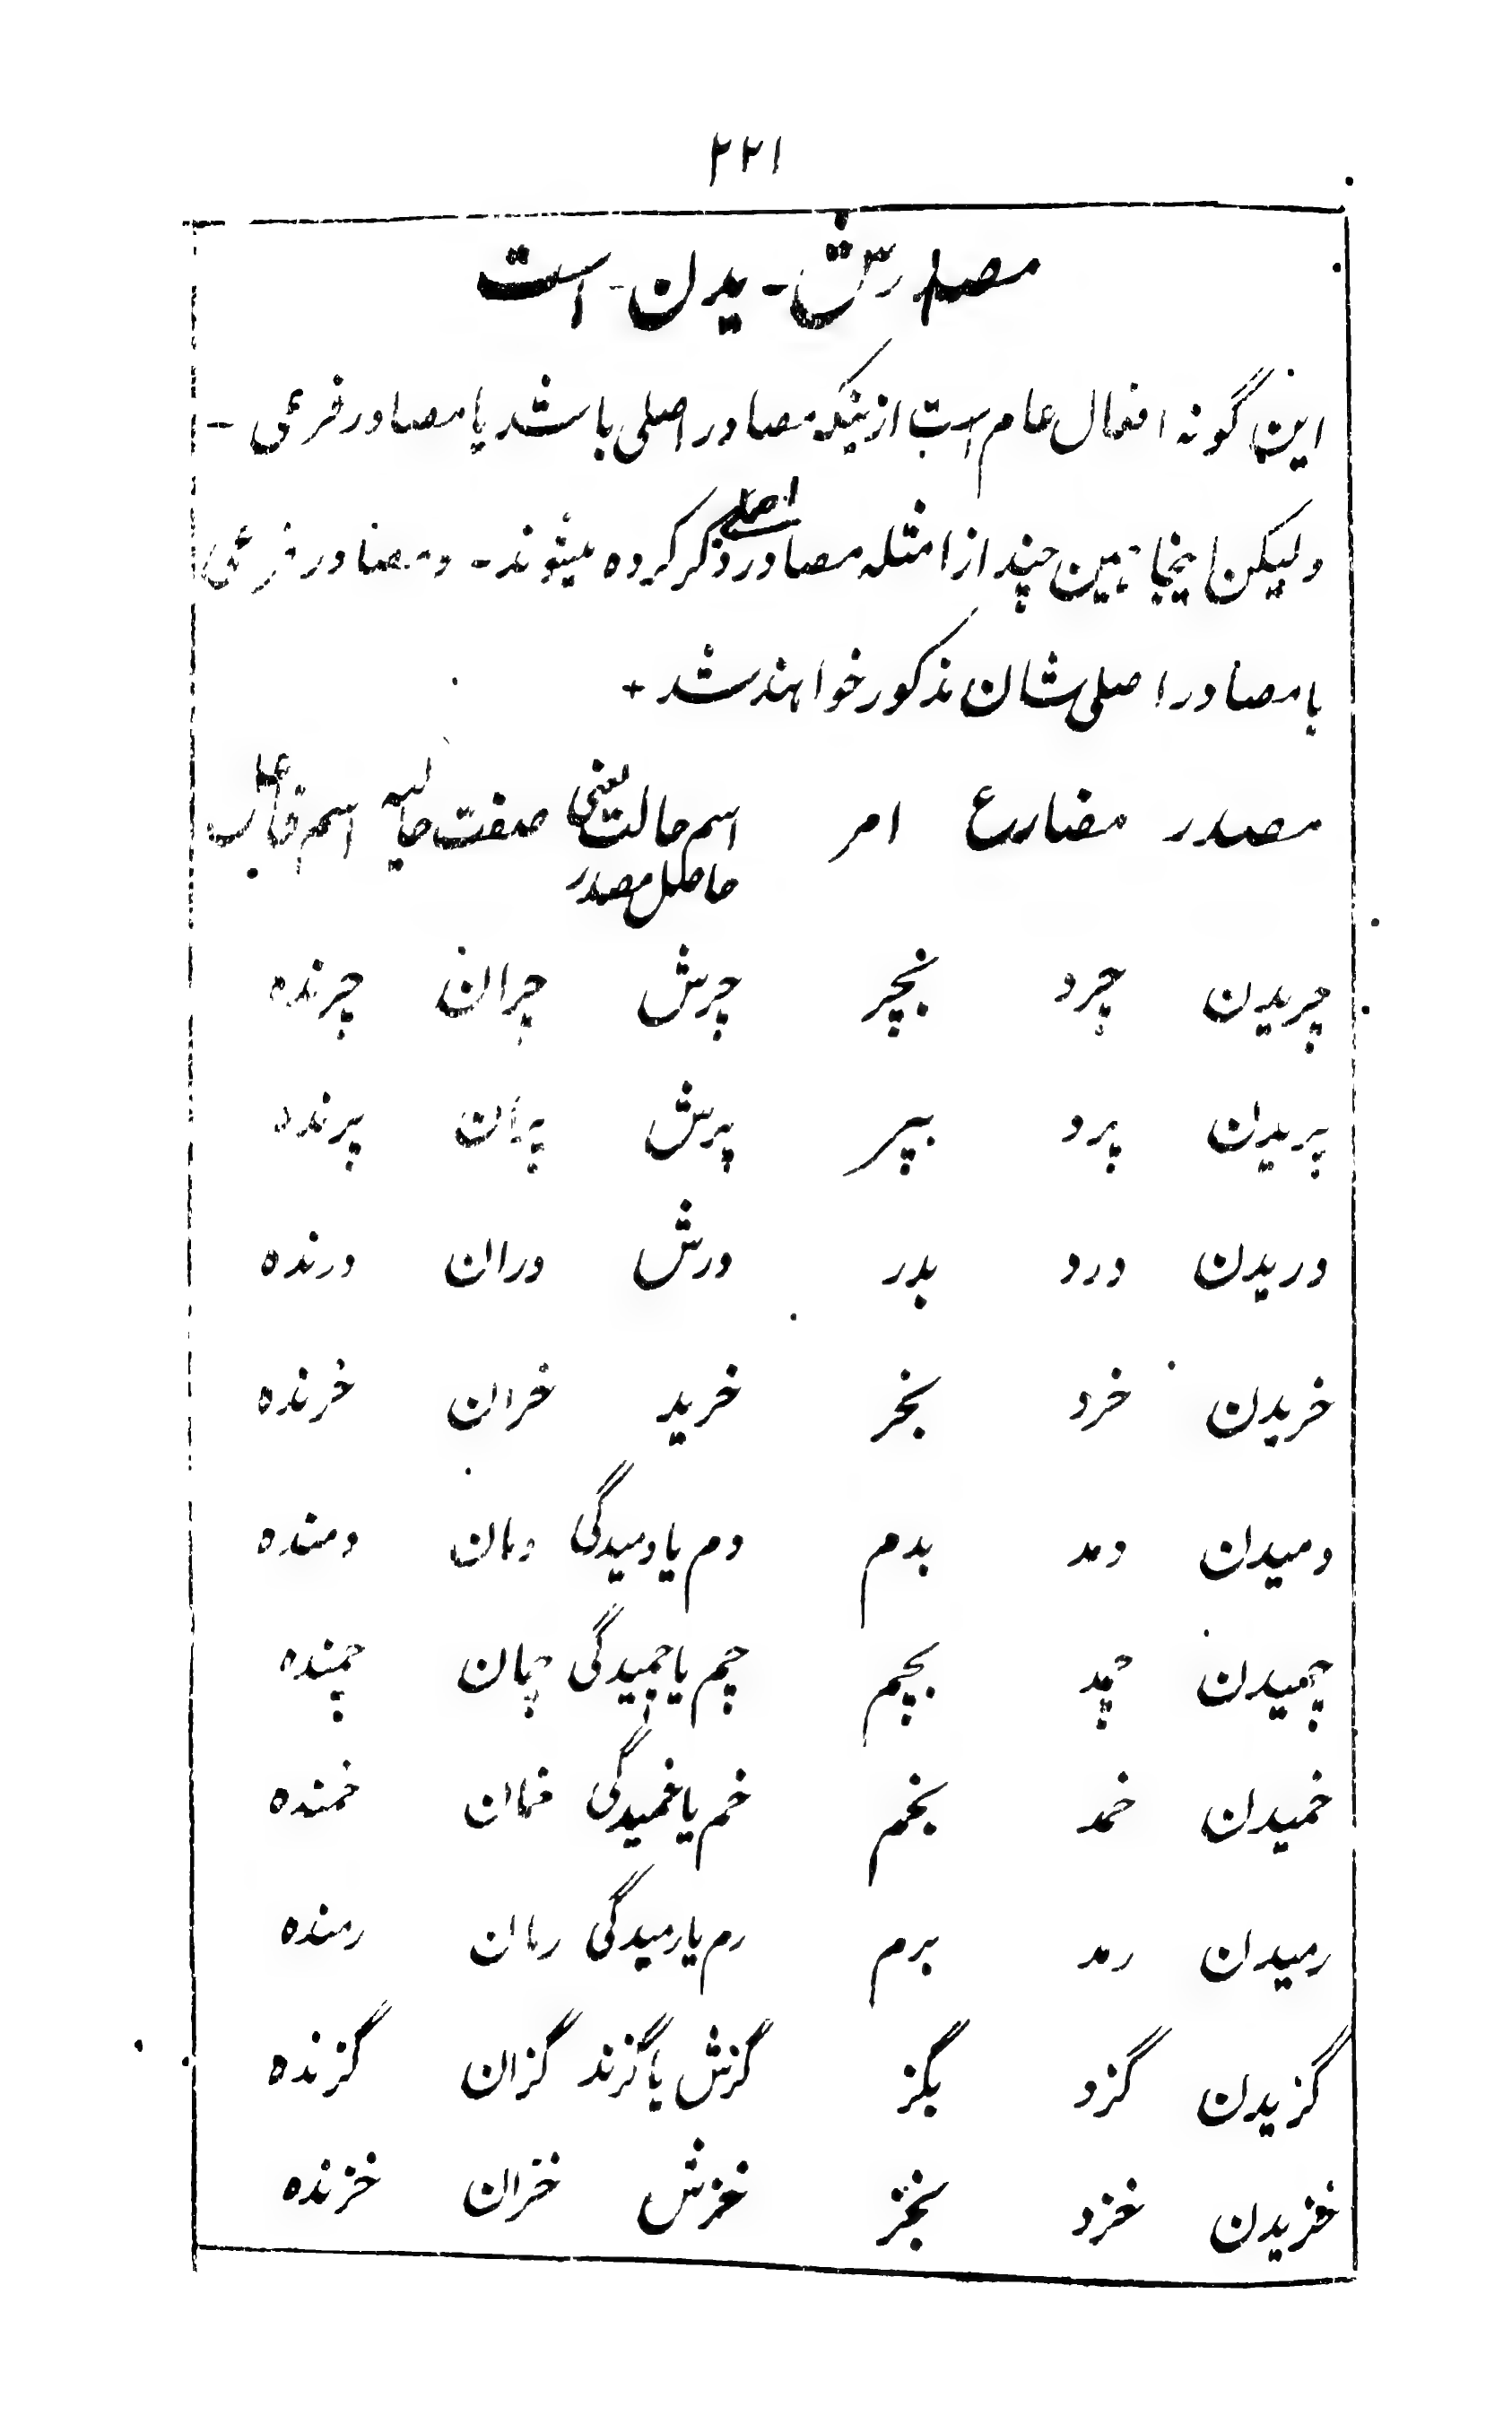 ۲۲۱
مصادرش - یدن - است
این گونه افعال عام است ازینکه مصادر اصلی باشد یا مصادر فرعی -
ولیکن اینجا همین چند از امثله مصادر اصلی ذکر کرده میشوند - ومصادر فرعی
با مصادر اصلی شان مذکور خواهند شد +
مصدر مضارع امر اسم حالت یعنی حاصل مصدر صفت حالیه اسم فاعل
چریدن چرد بچر چرش چران چرنده
پریدن پرد بپر پرش پران پرنده
دریدن درد بدر درش دران درنده
خریدن خرد بخر خرید خران خرنده
دمیدن دمد بدم دم یا دمیدگی دمان دمنده
چمیدن چمد بچم چم یا چمیدگی چمان چمنده
خمیدن خمد بخم خم یا خمیدگی خمان خمنده
رمیدن رمد برم رم یا رمیدگی رمان رمنده
گزیدن گزد بگز گزش یا گزند گزان گزنده
خزیدن خزد بخز خزش خزان خزنده